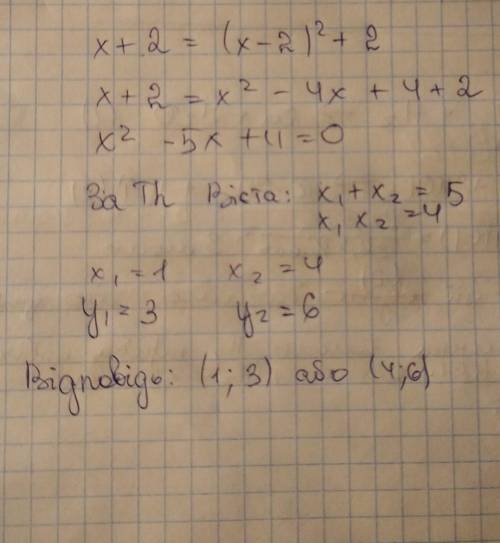 x + 2 = (x-2)² + 2
x + 2 = x² - 4x + 4 + 2
x² - 5x + 4 = 0
За Th Вієта: x₁ + x₂ = 5
x₁ x₂ = 4
x₁ = 1 x₂ = 4
y₁ = 3 y₂ = 6
Відповідь: (1; 3) або (4; 6)